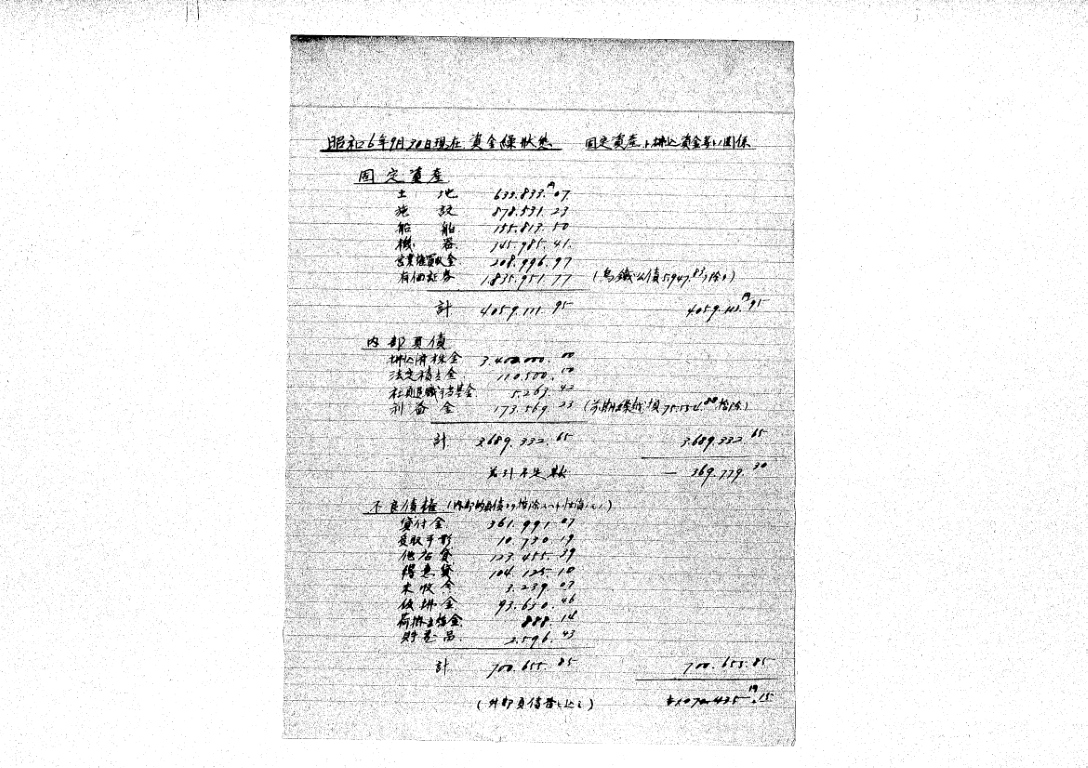 昭和6年9月30日現在 資金繰状態 固定資産ト拂込資金等トノ関係
固定資産
土地 633.833円07
施設 878.531.23
船舶 155.813.50
機器 145.985.41
営業権買収金 208.996.97
有価証券 1.835.951.77 (鳥鐵公債5.947.83ヲ除ク)
計 4.059.111.95 4.059.111円95
内部負債
拂込済株金 3.400.000.00
法定積立金 110.500.00
社員退職手当基金 5.263.42
利益金 173.569.23 (前期繰越損75.154.80控除)
計 3.689.332.65 3.689.332.65
差引不足額 — 369.779.30
不良債権
貸付金 361.991.07
受取手形 10.730.19
他店貸 123.455.39
得意貸 104.125.10
未收金 3.239.03
仮拂金 93.630.46
荷拂立替金 888.14
貯蔵品 2.596.43
計 700.655.85 700.655.85
(外部負債 込ム) 1.070.435円.15